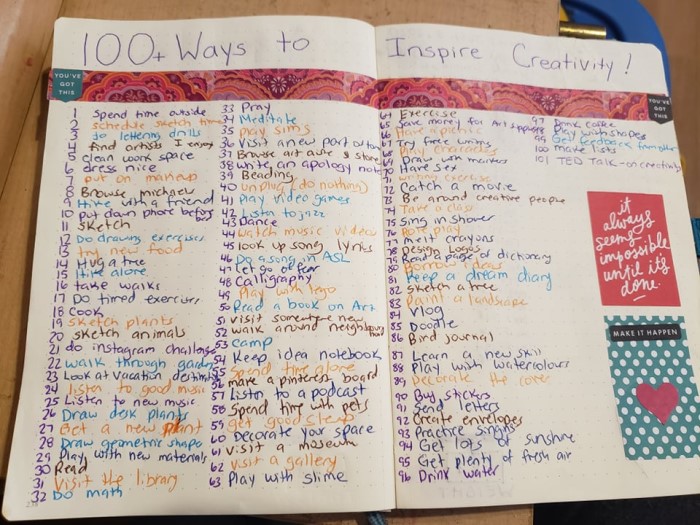 100+ Ways to Inspire Creativity!
YOU'VE GOT THIS
1 Spend time outside
2 schedule sketch time
3 do lettering drills
4 find artists I enjoy
5 clean work space
6 dress nice
7 put on makeup
8 Browse michaels
9 Hike with a friend
10 put down phone before bed
11 sketch
12 Do drawing exercises
13 try new food
14 Hug a tree
15 Hike alone
16 take walks
17 Do timed exercises
18 cook
19 sketch plants
20 sketch animals
21 do instagram challenge
22 walk through garden
23 Look at vacation destinations
24 listen to good music
25 Listen to new music
26 Draw desk plants
27 Get a new plant
28 Draw geometric shapes
29 Play with new materials
30 Read
31 Visit the library
32 Do math
33 Pray
34 Meditate
35 play sims
36 Visit a new part of town
37 Browse art
38 write an apology note
39 Beading
40 unplug (do nothing)
41 Play video games
42 Listen to jazz
43 Dance
44 watch music videos
45 look up song lyrics
46 Do a song in ASL
47 let go of fear
48 Calligraphy
49 Play with lego
50 Read a book on Art
51 visit someplace new
52 walk around neighborhood
53 camp
54 Keep idea notebook
55 Spend time alone
56 make a pinterest board
57 Listen to a podcast
58 Spend time with pets
59 get good sleep
60 Decorate your space
61 visit a museum
62 visit a gallery
63 Play with slime
YOU'VE GOT THIS
64 Exercise
65 Save money for Art supplies
66 Have a picnic
67 Try free writing
68 Play charades
69 Draw with markers
70 Have sex
71 writing exercise
72 Catch a movie
73 Be around creative people
74 Take a class
75 Sing in shower
76 Role play
77 melt crayons
78 Design Logos
79 Read a page of dictionary
80 Borrow ideas
81 Keep a dream diary
82 sketch a tree
83 paint a landscape
84 vlog
85 Doodle
86 Bird journal
87 Learn a new skill
88 Play with watercolours
89 Decorate the cover
90 Buy stickers
91 Send letters
92 Create envelopes
93 Practice
94 Get lots of sunshine
95 Get plenty of fresh air
96 Drink water
97 Drink coffee
98 Play with shapes
99 Get feedback from other
100 make lists
101 TED Talk - on creativity
it
always
seems
impossible
until it's
done.
MAKE IT HAPPEN